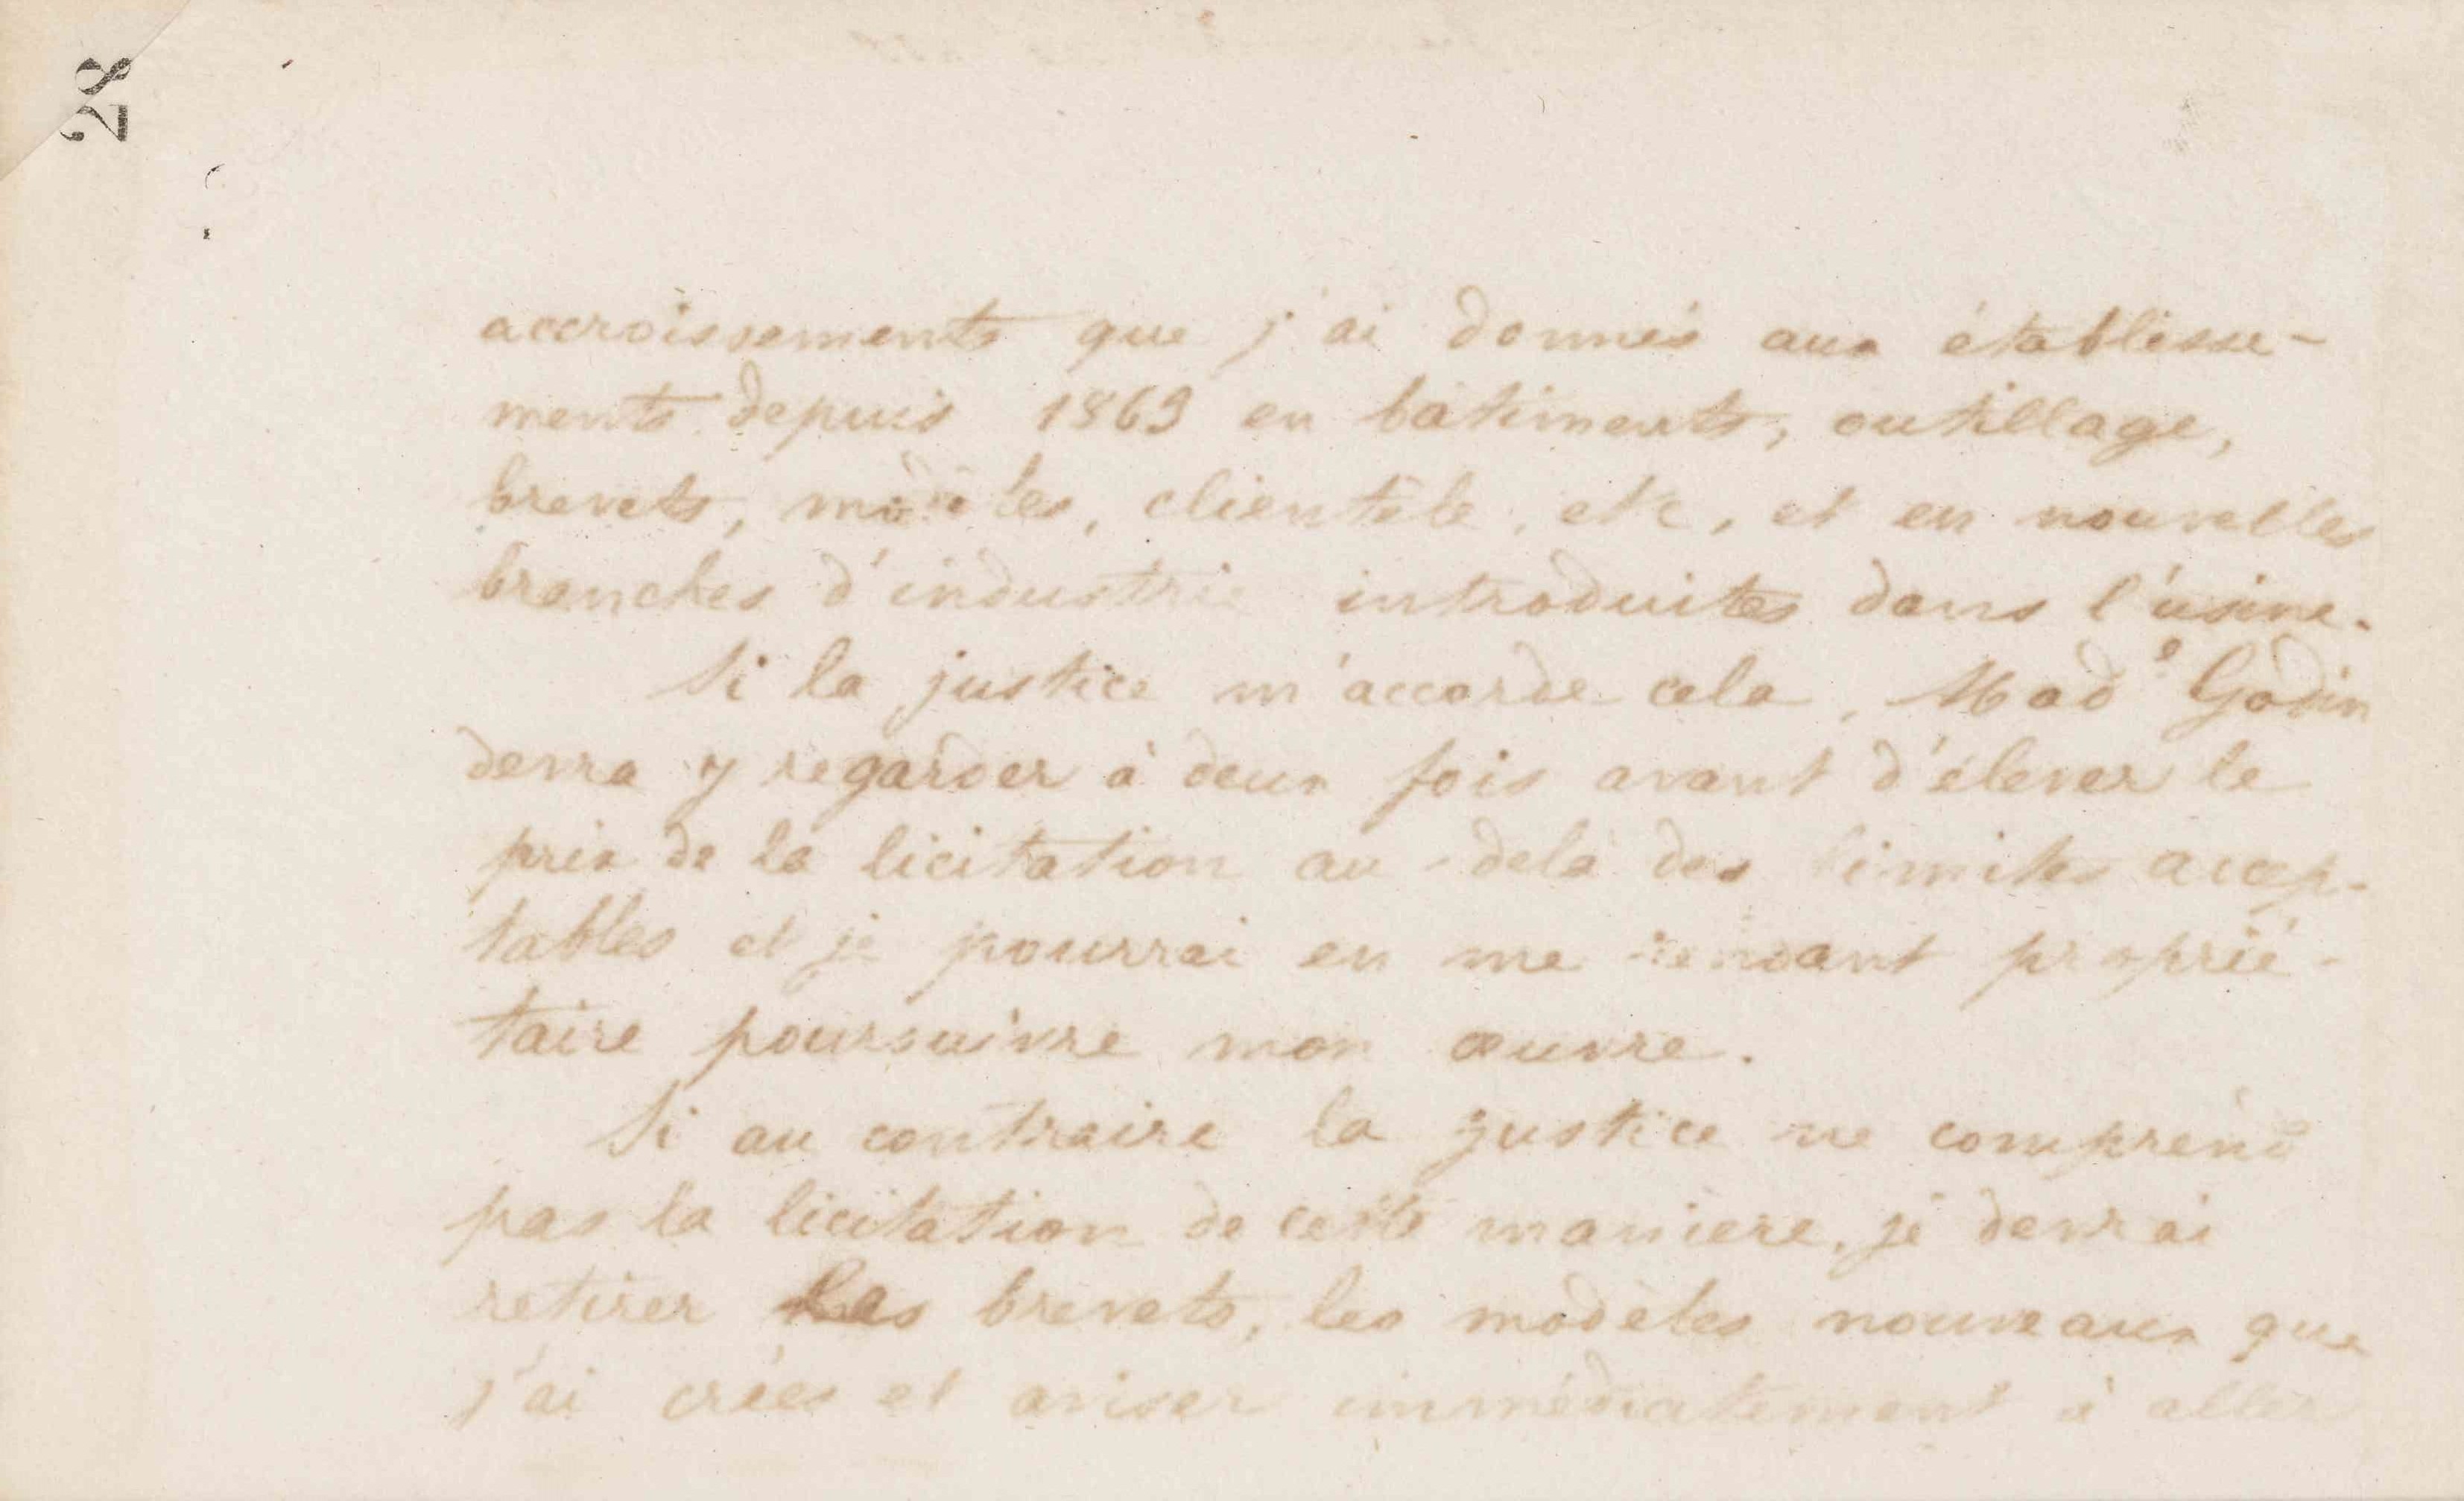 28
accroissements que j'ai donnés aux établisse-
ments depuis 1863 en bâtiments, outillage,
brevets, modèles, clientèle, etc, et en nouvelles
branches d'industrie introduites dans l'usine.
Si la justice m'accorde cela, Mad.e Godin
devra y regarder à deux fois avant d'élever le
prix de la licitation au-delà des limites accep-
tables et je pourrai en me rendant proprié-
taire poursuivre mon œuvre.
Si au contraire la justice ne comprend
pas la licitation de cette manière, je devrai
retirer les brevets, les modèles nouveaux que
j'ai créés et aviser immédiatement à aller